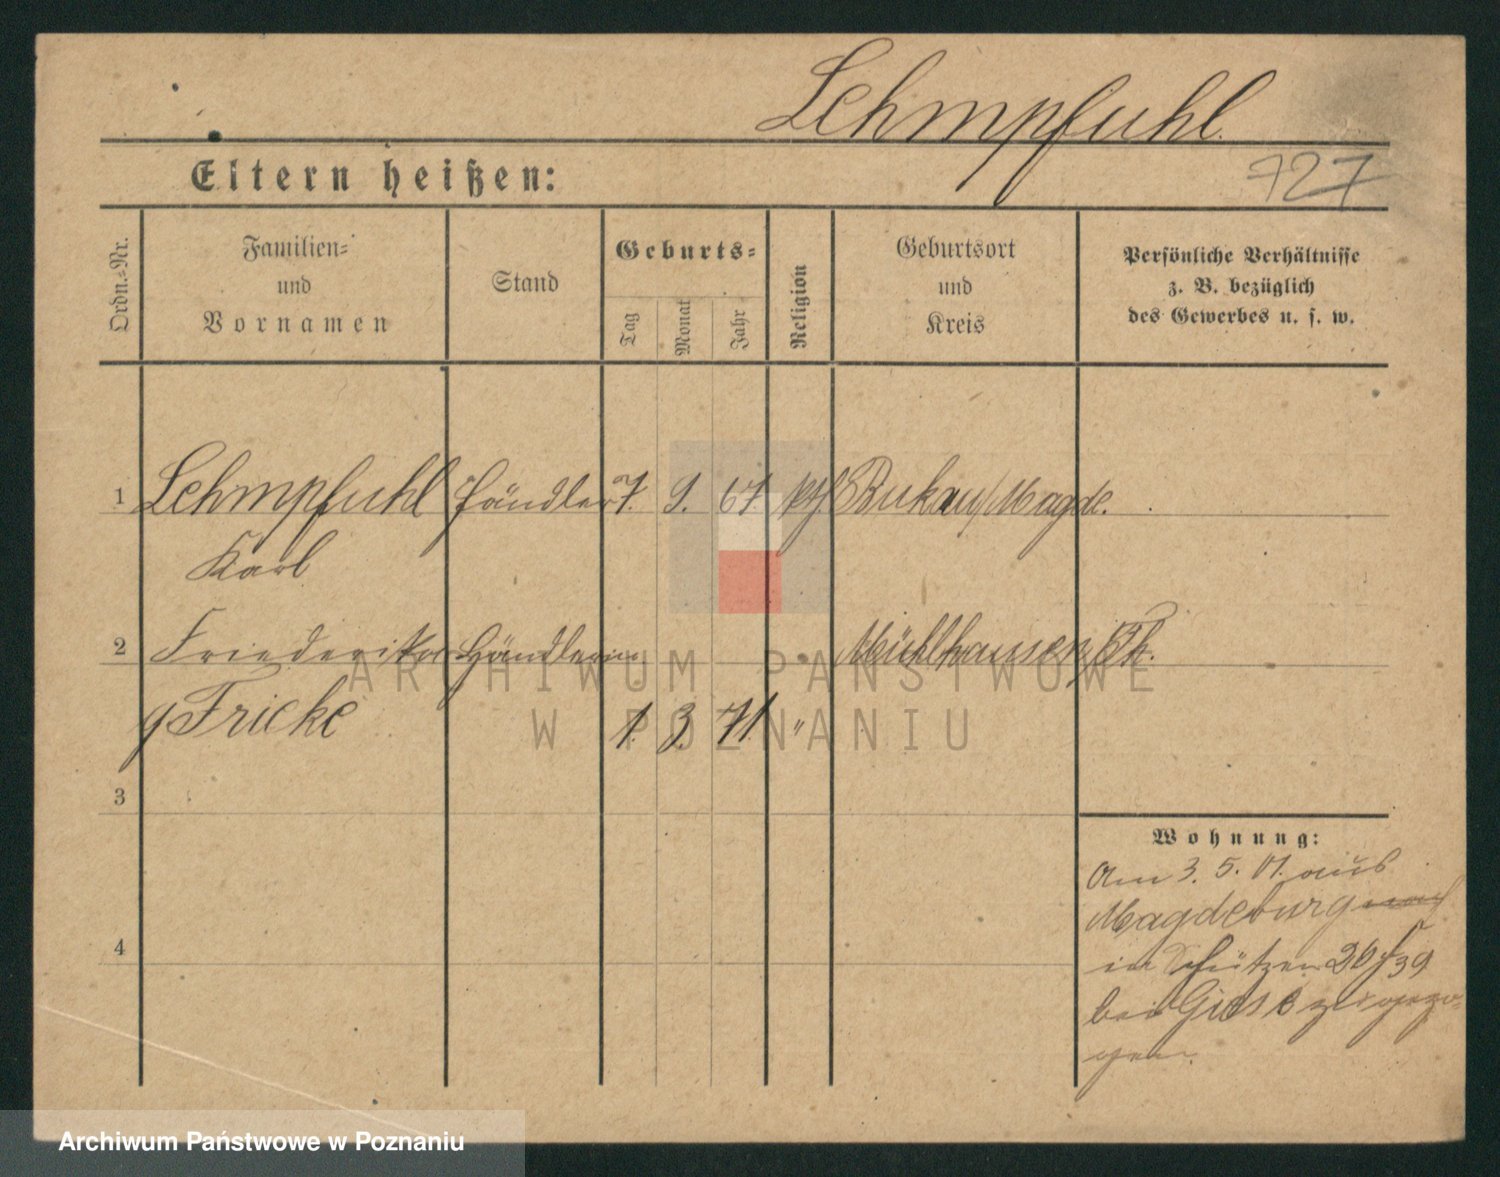 Lehmpfuhl.
Eltern heißen:
727
Ordn.-Nr.
Familien-
und
Vornamen
Stand
Geburts-
Tag
Monat
Jahr
Religion
Geburtsort
und
Kreis
Persönliche Verhältnisse
z. B. bezüglich
des Gewerbes u. s. w.
1 Lehmpfuhl Händler 7. 9. 67. Bukau/Magde.
Karl
2 Friederike Händlerin " Mühlhausen/Th.
g Fricke 1. 3. 71. "
3
4
Wohnung:
Am 3. 5. 01. aus
Magdeburg
in Schützen 26 39
bei Giese zugezo-
gen.
ARCHIWUM PAŃSTWOWE
W POZNANIU
Archiwum Państwowe w Poznaniu